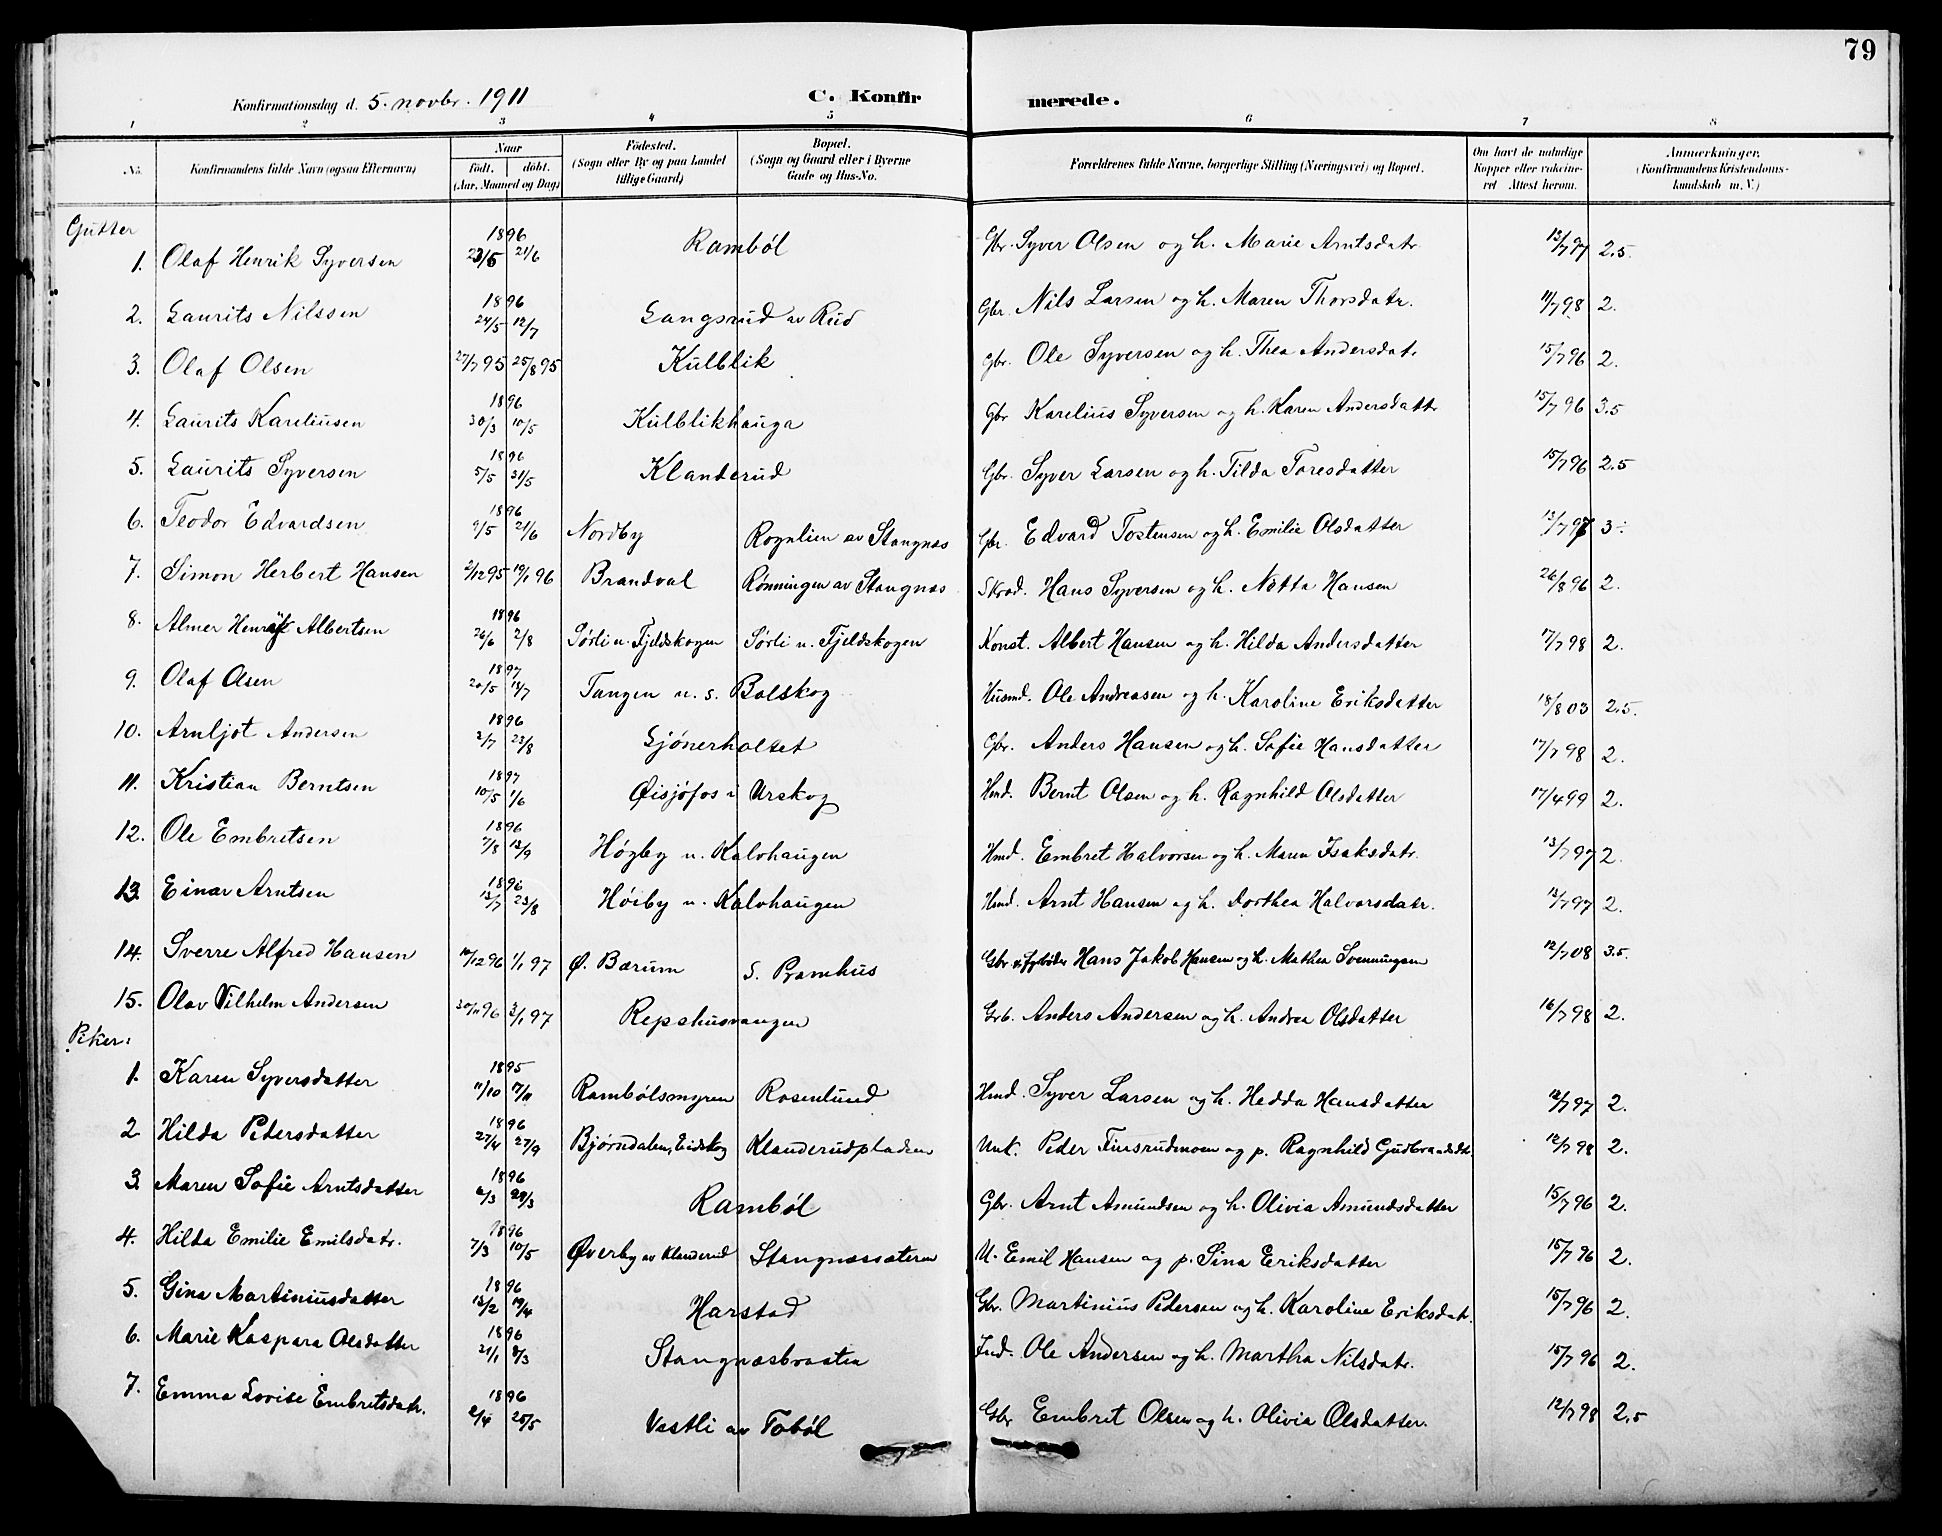 79
Konfirmationsdag d. 5. novbr. 1911 C. Konfirmerede.
1 2 3 4 5 6 7 8
No. Konfirmandens fulde Navn (ogsaa Efternavn) Naar født. døbt. (Aar, Maaned og Dag) Fødested. (Sogn eller By og paa Landet tillige Gaard) Bopæl. (Sogn og Gaard eller i Byerne Gade og Hus-No. Forældrenes fulde Navne, borgerlige Stilling (Næringsvei) og Bopæl. Om havt de naturlige Kopper eller vaccineret. Attest herom. Anmerkninger. (Konfirmandens Kristendomskundskab m. V.)
Gutter
1. Olaf Henrik Syversen 1896 23/5 21/6 Ramból Gbr. Syver Olsen og h. Marie Arntsdatr. 13/7 97 2.5.
2. Laurits Nilssen 1896 24/5 12/7 Langsrud av Rud Gbr. Nils Larsen og h. Maren Thorsdatr. 11/7 98 2.
3. Olaf Olsen 27/7 95 25/8 95 Kulblik Gbr. Ole Syversen og h. Thea Andersdatr 15/7 96 2.
4. Laurits Kareliusen 1896 30/3 10/5 Kulblikhauga Gbr Karelius Syversen og h. Karen Andersdattr 15/7 96 3.5
5. Laurits Syversen 1896 5/5 31/5 Klanderud Gbr. Syver Larsen og h. Tilda Toresdatter 15/7 96 2.5
6. Teodor Edvardsen 1896 9/5 21/6 Nordby Rognlien av Stangnæs Gbr. Edvard Tostensen og h. Emilie Olsdatter 13/7 97 3.
7. Simon Herbert Hansen 2/12 95 19/1 96 Brandval Rønningen av Stangnæs Skrad. Hans Syversen og h. Netta Hansen 26/8 96 2.
8. Almer Henrik Albertsen 1896 26/6 2/8 Sørli u. Fjeldskogen Sørli u. Fjeldskogen Konst. Albert Hansen og h. Hilda Andersdatter 17/7 98 2.
9. Olaf Olsen 1897 20/5 18/7 Tangen u. s. Bolskog Husmd. Ole Andreasen og h. Karoline Eriksdatter 18/8 03 2.5.
10. Arnljot Andersen 1896 2/7 23/8 Gjónerholtet Gbr. Anders Hansen og h. Sofie Hansdatter 17/7 98 2.
11. Kristian Berntsen 1897 10/5 1/6 Øisjófos i Urskog Hmd. Bernt Olsen og h. Ragnhild Olsdatter 17/4 99 2.
12. Ole Embretsen 1896 7/8 13/9 Høgby u. Kalvhaugen Hmd. Embret Halvorsen og h. Maren Isaksdatr. 13/7 97 2.
13. Einar Arntsen 1896 13/7 23/8 Høiby u. Kalvhaugen Hmd. Arnt Hansen og h. Dorthea Halvorsdatr. 13/7 97 2.
14. Sverre Alfred Hansen 17/12 96 1/1 97 Ø. Bærum S. Pramhus Gbr. Hans Jakob Hansen og h. Mathea Svenningsen 12/7 08 3.5.
15. Olav Vilhelm Andersen 30/11 96 3/1 97 Repshusvangen Grb. Anders Andersen og h. Andrea Olsdatter 16/7 98 2.
Piker:
1. Karen Syversdatter 1895 11/10 17/11 Rambólsmyren Rosenlund Hmd. Syver Larsen og h. Hedda Hansdatter 12/7 97 2.
2. Hilda Pedersdatter 1896 27/4 27/9 Bjørndalen, Eidskog Klanderudpladsen Unk. Peder Finsrudmoen og p. Ragnhild Gudbrandsdt. 12/7 98 2.
3. Maren Sofie Arntsdatter 1896 6/3 29/3 Ramból Gbr. Arnt Amundsen og h. Olivia Amundsdatter 15/7 96 2.
4. Hilda Emilie Emilsdatr. 1896 7/3 10/5 Øverby av Klanderud Stangnæssæteren U. Emil Hansen og p. Sina Eriksdatter 15/7 96 2.
5. Gina Martiniusdatter 1896 13/2 19/4 Harstad Gbr. Martinius Pedersen og h. Karoline Eriksdatr. 15/7 96 2.
6. Marie Kaspara Olsdatter 1896 21/1 8/3 Stangnæsbraatea Ind. Ole Andersen og h. Martha Nilsdatr. 15/7 96 2.
7. Emma Lovise Embretsdatr. 1896 2/4 25/5 Vestli av Toból Gbr Embret Olsen og h. Olivia Olsdatter. 12/7 98 2.5